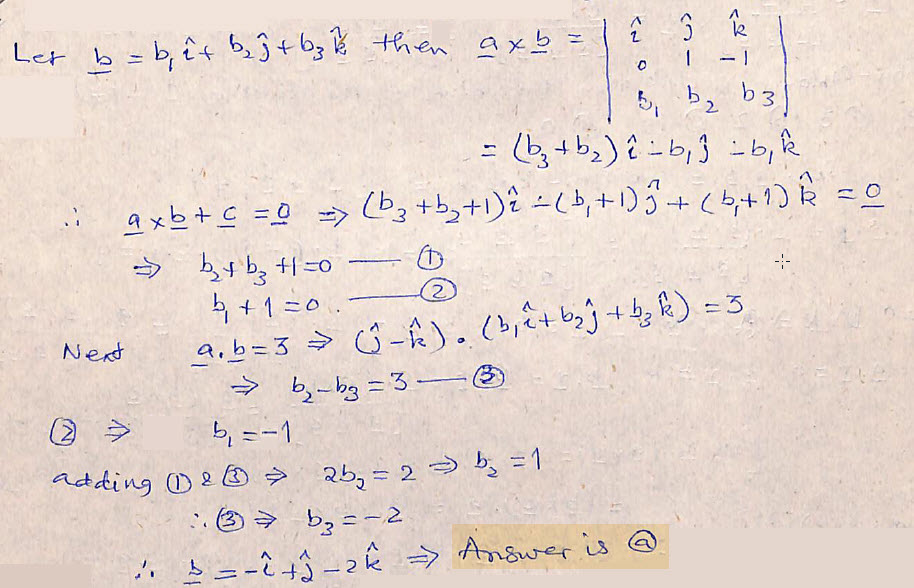 Let b̲ = b₁î + b₂ĵ + b₃k̂ then a̲ × b̲ = | î ĵ k̂ |
| 0 1 -1 |
| b₁ b₂ b₃ |
= (b₃+b₂) î - b₁ĵ - b₁k̂
∴ a̲×b̲ + c̲ = 0̲ ⇒ (b₃+b₂+1)î - (b₁+1)ĵ + (b₁+1)k̂ = 0̲
⇒ b₂+b₃+1=0 —— ①
b₁+1=0. —— ②
Next a̲.b̲=3 ⇒ (ĵ-k̂).(b₁î+b₂ĵ+b₃k̂) = 3
⇒ b₂-b₃=3 —— ③
② ⇒ b₁=-1
adding ① & ③ ⇒ 2b₂=2 ⇒ b₂=1
∴ ③ ⇒ b₃=-2
∴ b̲ = -î+ĵ-2k̂ ⇒ Answer is ⓐ